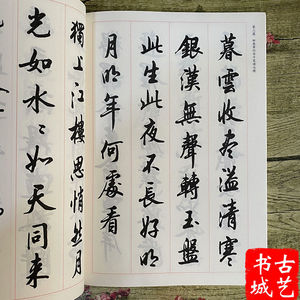 暮雲收盡溢清寒
銀漢無聲轉玉盤
此生此夜不長好明
月明年何處看
獨上江樓思悄然月
光如水水如天同来
古艺
书城